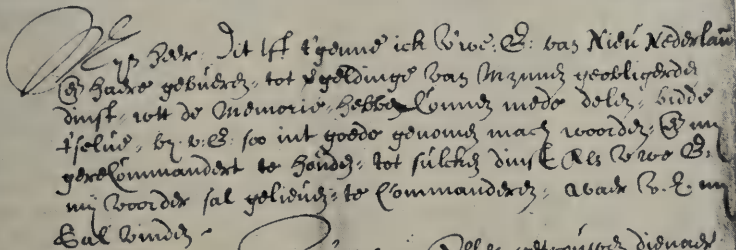 Myn Heer. Dit Ist t'genne ick Uwe. E. van Nieu Nederlan
En haere gebueren, tot vgeldinge van Mynnen geobligerde
dinst, wtt de Memorie, hebbe Connen mede delen, bidde
t'selve, by. v. E. soo int goede genomen mach woorden, En my
gereCommandert te houden, tot sulcken dinst Als Uwe E.
my voorder sal gelieven, te Commanderen, waer v. E. my
Sal vinden
dienaer